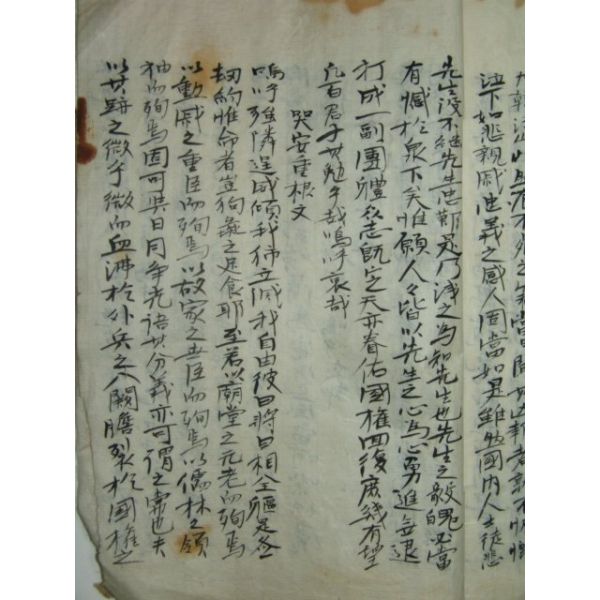 有不死之
泣下如悲親戚忠義之感人固當如是雖然國內人士徒悲
先生沒不繼先生忠乃淺之為知先生也先生之毅魄必當
有憾於泉下矣惟願人々皆以先生之心為心勇進無退
打成一副團體衆志旣定天亦眷佑國權回復庶幾有望
凡百君子其勉乎哉嗚呼哀哉
哭安重根文
嗚呼强隣逞威傾我獨立滅我自由彼曰將曰相全軀是
刼約惟命者豈狗彘之足食耶至若以廟堂之元老而殉焉
以勳戚之重臣而殉焉以故家之世臣而殉焉以儒林之領
袖而殉焉固可與日同爭光語其分義亦可謂之常也夫
以其跡之微乎微而血沸於外兵之入闕膽裂於國權之